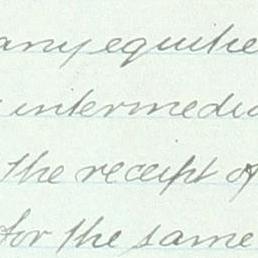 any equitie
intermedia
the receipt of
for the same